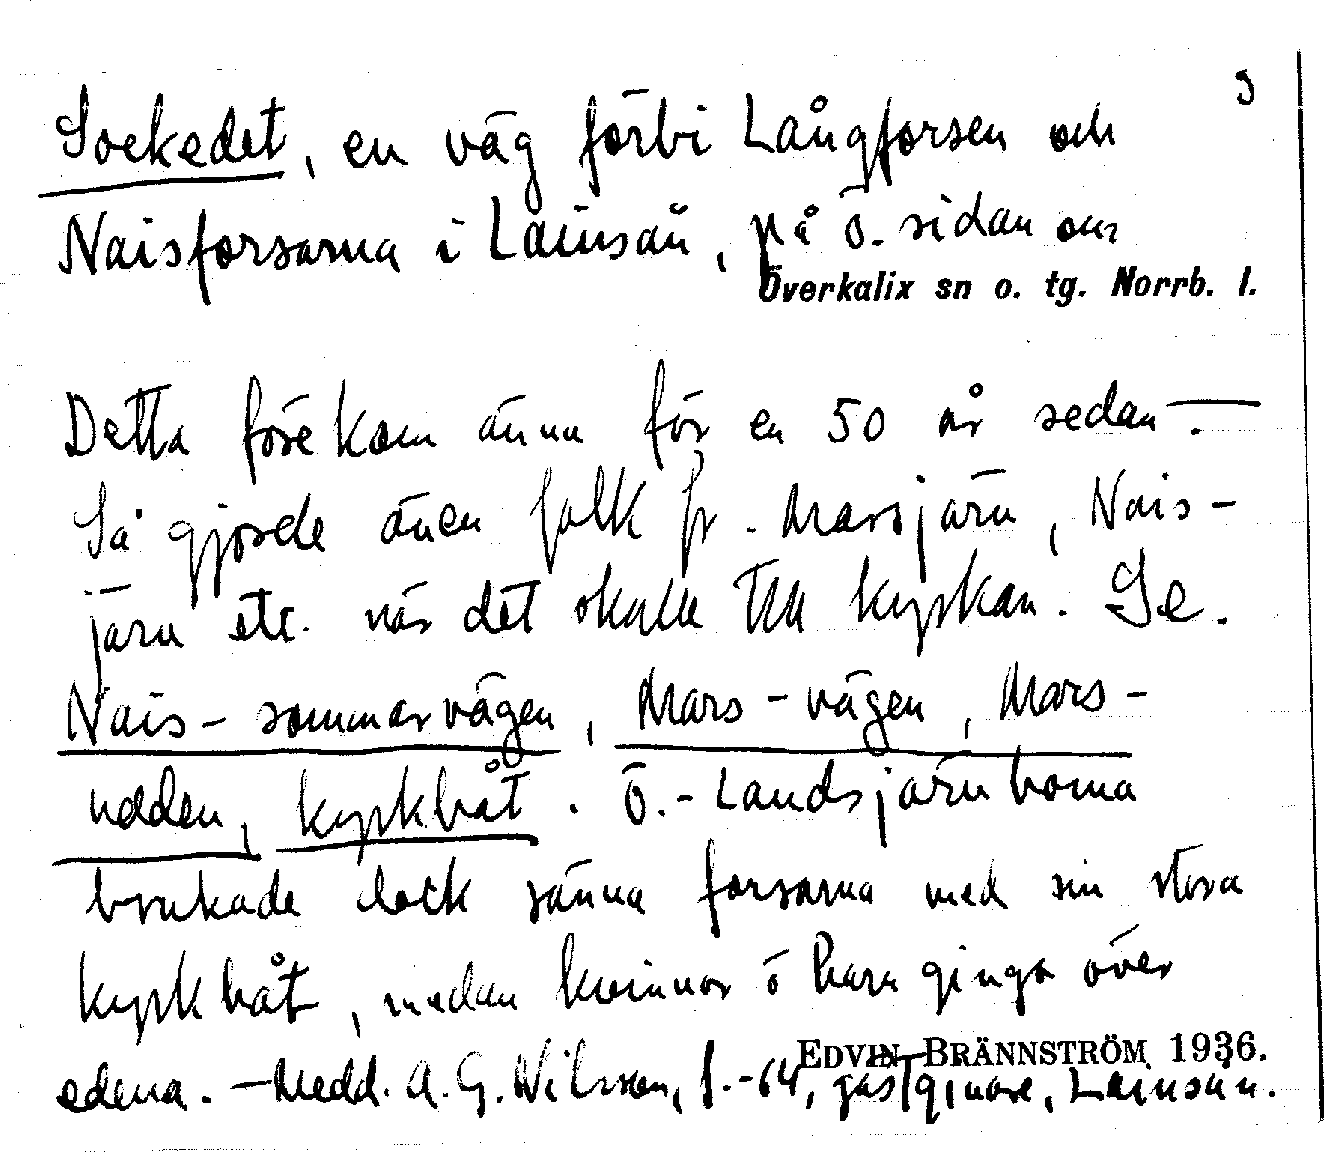 3
Sockedet, en väg förbi Långforsen och
Naisforsarna i Lainsån, på ö. sidan om
Överkalix sn o. tg. Norrb. l.
Detta förekom ännu för en 50 år sedan. —
Så gjorde även folk fr. Marsjärn, Nais-
järn etc. när det skulle till kyrkan. Se.
Nais-sommarvägen, Mars-vägen, Mars-
nedan, kyrkbåt. Ö.-Landsjärnborna
brukade dock sänna forsarna med sin stora
kyrkbåt, medan kvinnor o barn gingo över
EDVIN BRÄNNSTRÖM 1936.
edena. — Medd. A. G. Nilsson, f. -64, gästgivare, Lainsån.